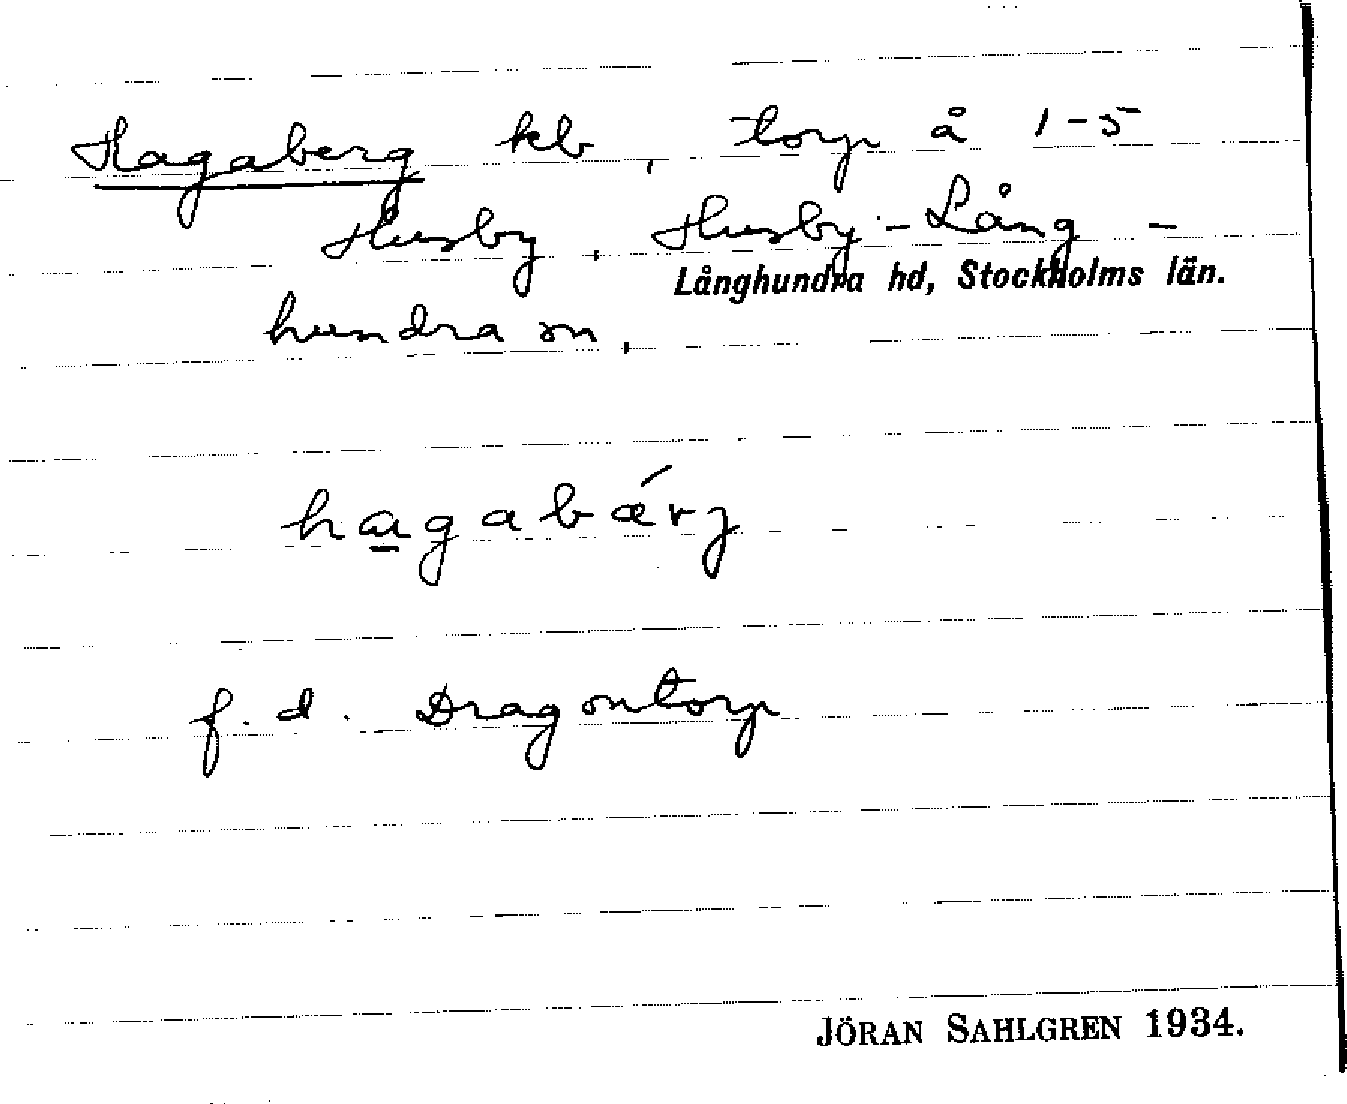 Hagaberg kb, torp å 1-5
Husby, Husby-Lång-
Långhundra hd, Stockholms län.
hundra sn,
hagabǽrj
f. d. Dragontorp
JÖRAN SAHLGREN 1934.